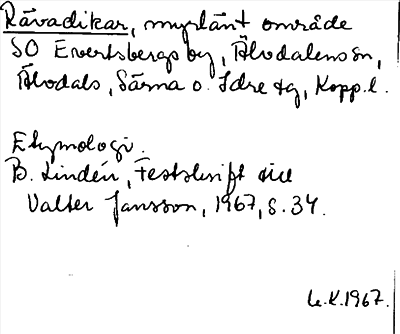 Råvadikar, myrlänt område
SO Evertsbergs by, Älvdalens sn,
Älvdals, Särna o. Idre tg, Kopp. l.
Etymologi.
B. Lindén, Festskrift till
Valter Jansson, 1967, s. 34.
K. 1967.